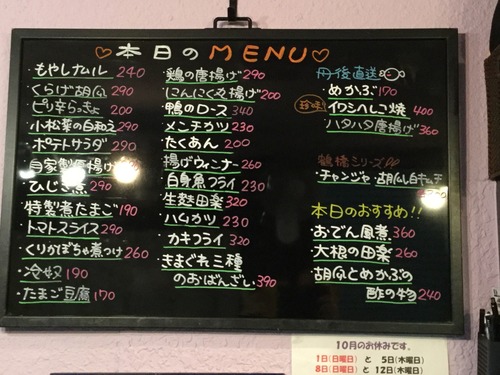 本日のMENU
・もやしナムル 240
・くらげ胡瓜 290
・ピリ辛らっきょ 200
・小松菜の白和え 290
・ポテトサラダ 290
・自家製厚揚げ
・ひじき煮 190
・特製煮たまご 190
・トマトスライス 290
・くりかぼちゃ煮つけ 260
・冷奴 190
・たまご豆腐 170
・鶏の唐揚げ 290
・にんにく丸揚げ 200
・鴨のロース 340
・メンチカツ 230
・たくあん 200
・揚げウィンナー 260
・白身魚フライ 230
・生麩田楽 320
・ハムカツ 230
・カキフライ 320
・きまぐれ三種
のおばんざい 390
丹後直送
・めかぶ 170
珍味 ・イワシへしこ焼 400
・ハタハタ唐揚げ 360
鶴橋シリーズ
・チャンジャ・胡瓜白キムチ
本日のおすすめ!!
・おでん風煮 360
・大根の田楽 260
・胡瓜とめかぶの
酢の物 240
10月のお休みです。
1日(日曜日) と 5日(木曜日)
8日(日曜日) と 12日(木曜日)